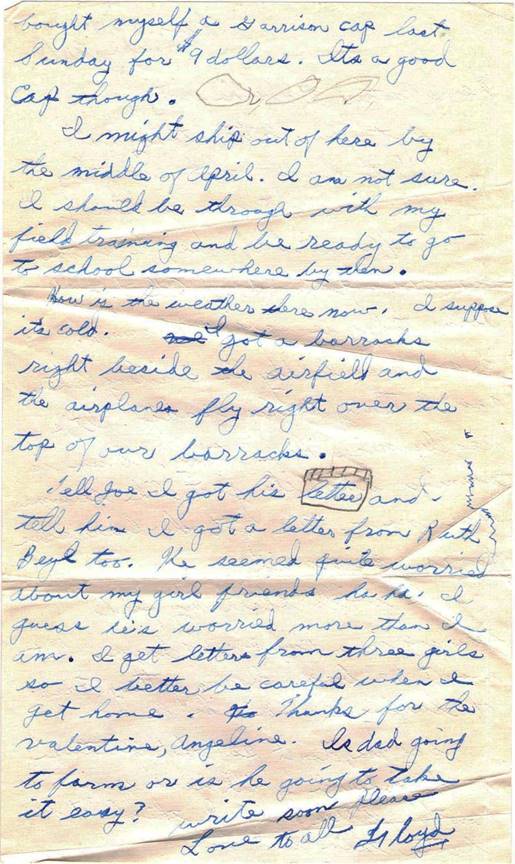 bought myself a Garrison cap last
Sunday for $9 dollars. Its a good
Cap though.
I might ship out of here by
the middle of April. I am not sure.
I should be through with my
field training and be ready to go
to school somewhere by then.
How is the weather there now. I suppose
its cold. I got a barracks
right beside the airfield and
the airplanes fly right over the
top of our barracks.
Tell Joe I got his letter and
tell him I got a letter from Ruth
Beyl too. He seemed quite worried
about my girl friends ha ha. I
guess he's worried more than I
am. I get letters from three girls
so I better be careful when I
get home. Thanks for the
valentine, Angeline. Is dad going
to farm or is he going to take
it easy?
write soon please
Love to all Floyd